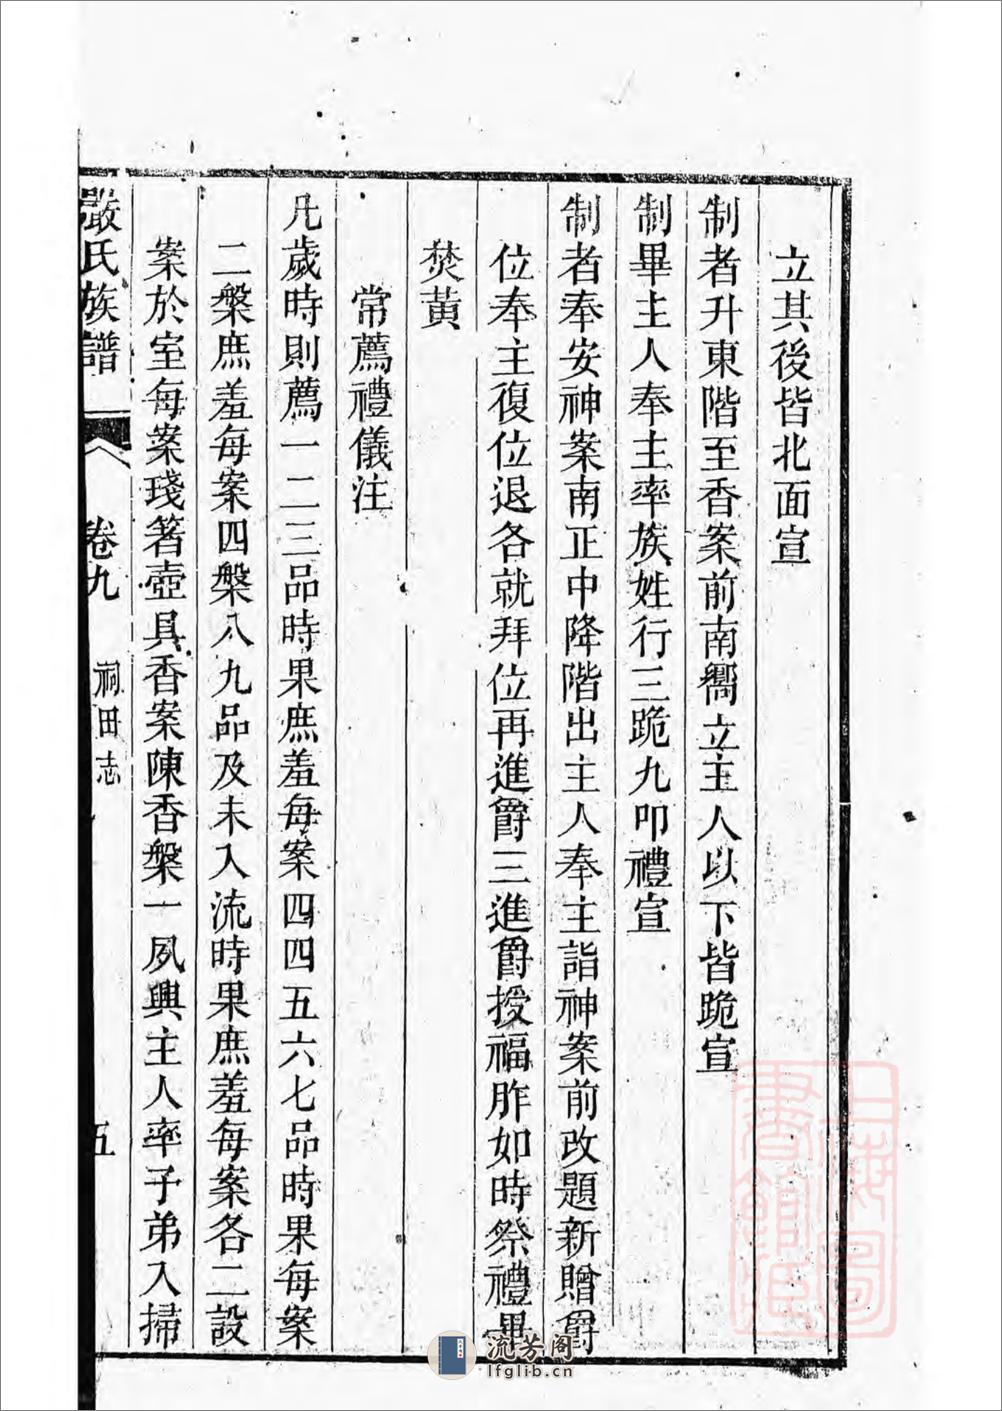 立其後皆北面宣
制者升東階至香案前南嚮立主人以下皆跪宣
制畢主人奉主率族姓行三跪九叩禮宣
制者奉安神案南正中降階出主人奉主詣神案前改題新贈爵
位奉主復位退各就拜位再進爵三進爵授福胙如時祭禮畢
焚黃
常薦禮儀注
凡歲時則薦一二三品時果庶羞每案四四五六七品時果每案
二槃庶羞每案四槃八九品及未入流時果庶羞每案各二設
案於室每案琖箸壺具香案陳香槃一夙興主人率子弟入掃
嚴氏族譜
卷九
祠田志
五
上海圖書館藏
流芳阁
lfglib.cn